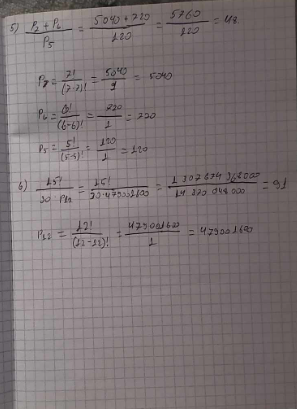 5) (P₇ + P₆)/P₅ = (5040 + 720)/120 = 5760/120 = 48
P₇ = 7!/(7-7)! = 5040/1 = 5040
P₆ = 6!/(6-6)! = 720/1 = 720
P₅ = 5!/(5-5)! = 120/1 = 120
6) 15!/(30·P₁₂) = 15!/(30·479001600) = 1 307 674 368 000/14 370 048 000 = 91
P₁₂ = 12!/(12-12)! = 479001600/1 = 479001600